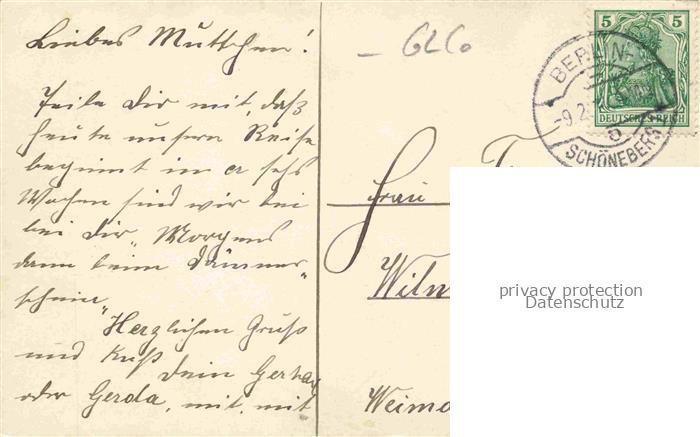 Liebes Muttchen!
Teile Dir mit, daß
heute unsere Reise
beginnt in ca sechs
Wochen sind wir bei
bei Dir „Morgens
dann beim Dämmer-
schein"
Herzlichen Gruß
und Kuß
Dein Gerhard
oder Gerda, mit, mit
5 5
DEUTSCHES REICH
BERLIN-
-9.2.
SCHÖNEBERG
5
Frau
Wilm
Weima
privacy protection
Datenschutz